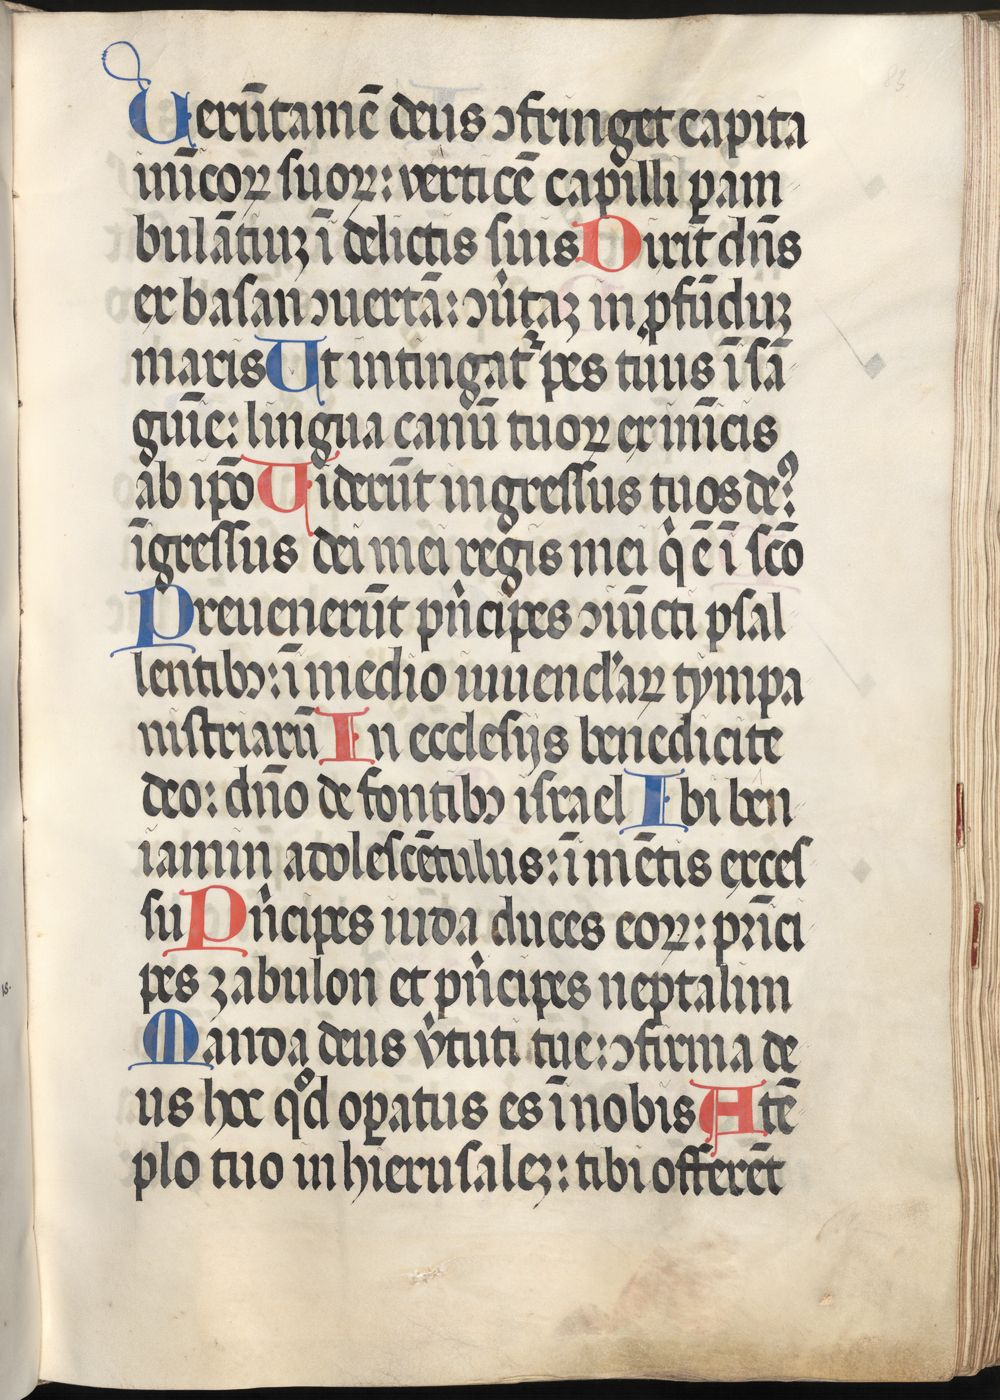 Uerũtamẽ deus ↄfringet capita
inĩcoꝝ suoꝝ: verticẽ capilli ꝑam
bulãtiuȝ ĩ delictis suis Dixit dñs
ex basan ↄuertã: ↄũtaȝ in ꝓfũduȝ
maris Ut intingat᷑ pes tuus ĩ sã
guĩe: lingua canũ tuoꝝ ex inĩcis
ab ip̃o Uiderũt ingressus tuos deꝰ:
ĩgressus dei mei regis mei qͥ ẽ ĩ scõ
Preuenerũt pͥncipes ↄiũcti psal
lentibꝰ: ĩ medio iuuencl'aꝝ tympa
nistriarũ In ecclesijs benedicite
deo: dño de fontibꝰ israel Ibi ben
iamin adolescẽtulus: ĩ mẽtis exces
su Pͥncipes iuda duces eoꝝ: prĩci
pes zabulon et pͥncipes neptalim
Manda deus vͥtuti tue: ↄfirma de
us hoc qͦd oꝑatus es ĩ nobis A tẽ
plo tuo in hierusaleȝ: tibi offerẽt
83